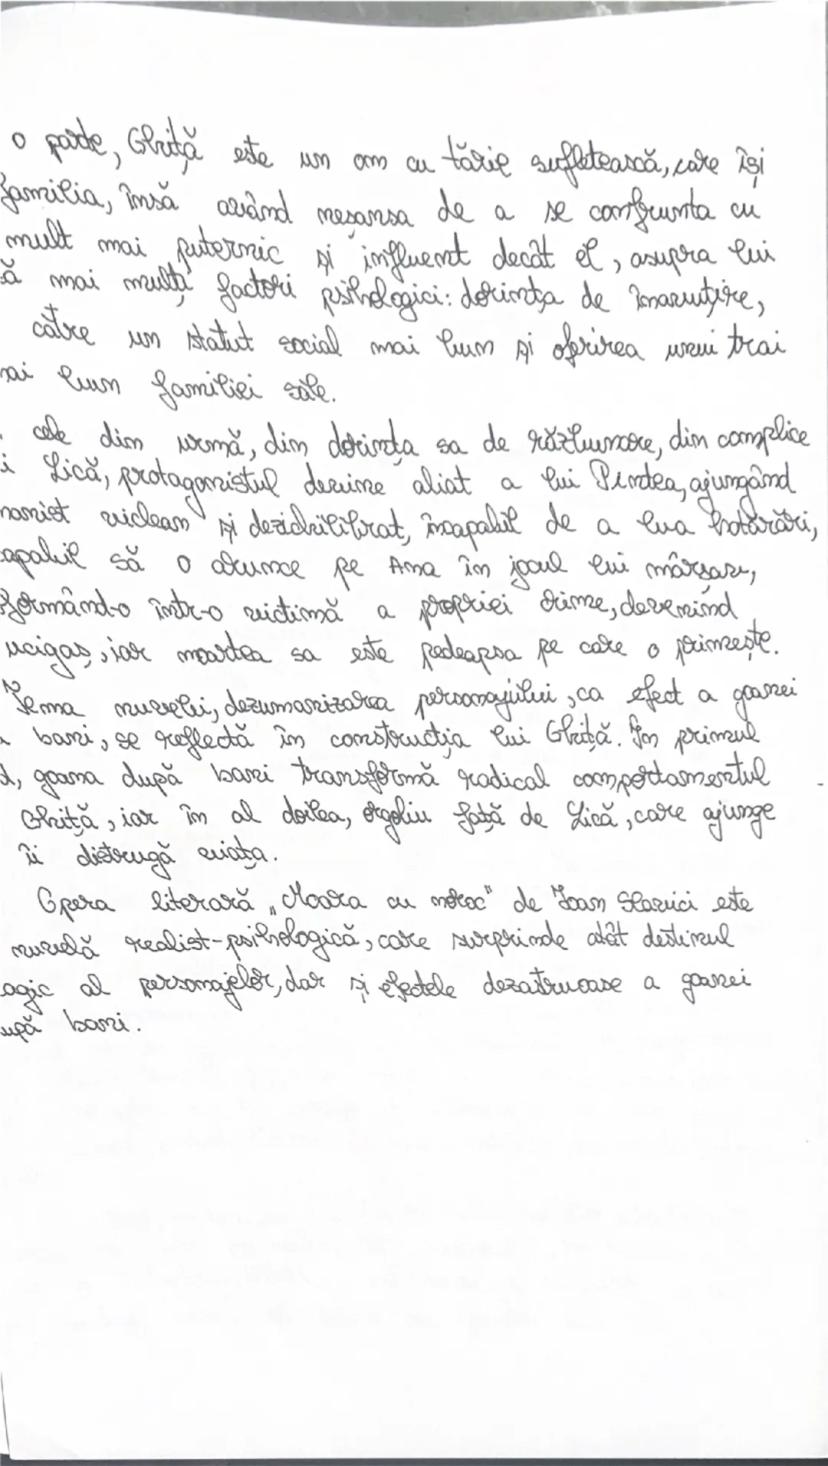 o parte, Ghiță este un om cu tărie sufletească, care își
familia, însă având neșansa de a se confrunta cu
mult mai puternic și influent decât el, asupra lui
ă mai mulți factori psihologici: dorința de înavuțire,
către un statut social mai bun și oferirea unui trai
ai bun familiei sale.
cele din urmă, din dorința sa de răzbunare, din complice
i Lică, protagonistul devine aliat a lui Pintea, ajungând
viclean și dezichilibrat, incapabil de a lua hotărâri,
apabil să o arunce pe Ana în jocul lui mârșav,
formând-o într-o victimă a propriei drime, devenind
ucigaș, iar moartea sa este pedeapsa pe care o primește.
Tema nuvelei, dezumanizarea personajului, ca efect a goanei
bani, se reflectă în construcția lui Ghiță. În primul
d, goana după bani transformă radical comportamentul
Ghiță, iar în al doilea, orgoliu față de Lică, care ajunge
îi distrugă viața.
Opera literară „Moara cu noroc" de Ioan Slavici este
nuvelă realist-psihologică, care surprinde atât destinul
ogic al personajelor, dar și efectele dezatruoase a goanei
upă bani.